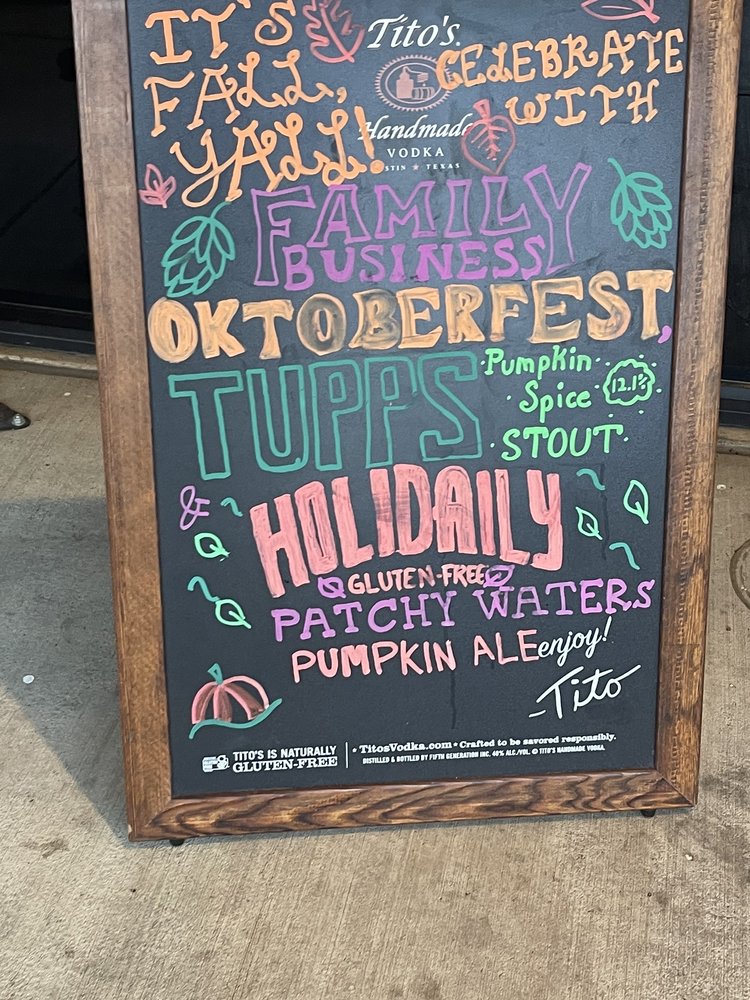 IT'S
FALL,
Y'ALL!
Tito's
Handmade
VODKA
TEXAS
CELEBRATE
WITH
FAMILY
BUSINESS
OKTOBERFEST,
TUPPS
Pumpkin
Spice
STOUT
12.1%
&
HOLIDAILY
GLUTEN-FREE
PATCHY WATERS
PUMPKIN ALE
enjoy!
-Tito
TITO'S IS NATURALLY
GLUTEN-FREE
* TitosVodka.com * Crafted to be savored responsibly.
DISTILLED & BOTTLED BY FIFTH GENERATION INC. 40% ALC./VOL. © TITO'S HANDMADE VODKA.